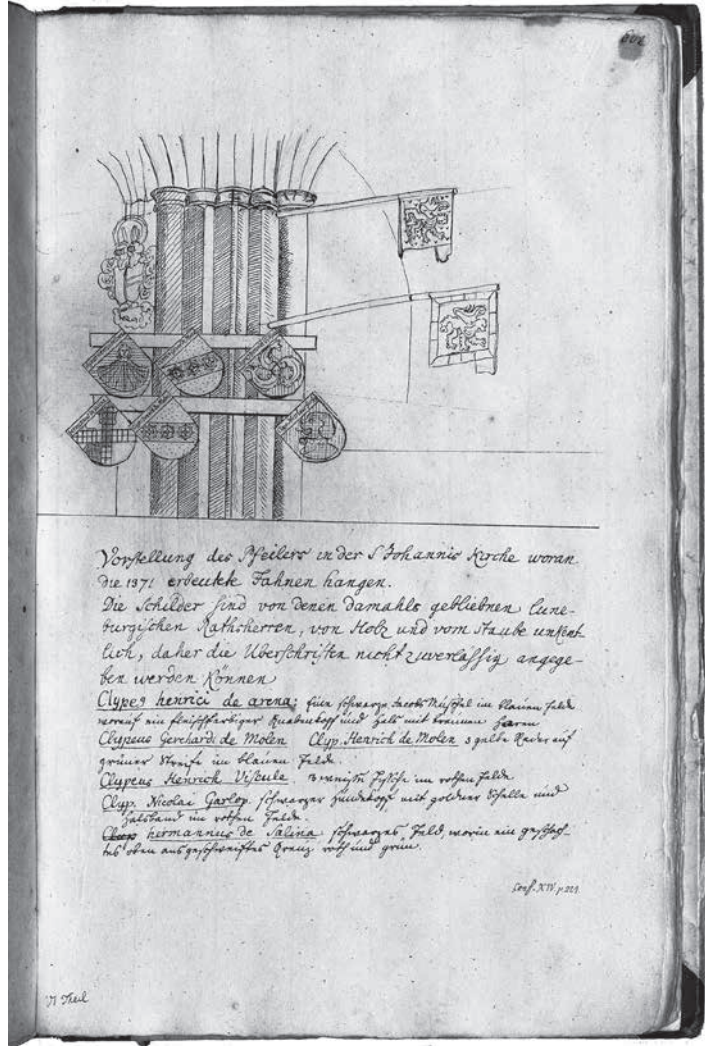 Vorstellung des Pfeilers in der S Johannis Kirche woran
die 1371 erbeutete Fahnen hangen.
Die Schilder sind von denen damahls gebliebnen lune-
burgischen Rathsherren, von Holz und vom Staube unkent-
lich, daher die Uberschriften nicht zuverlässig angege-
ben werden können
Clype9 henrici de arena: Eine schwarze Jacobs Muschel im blauen Felde
worauf ein fleischfarbiger Knabenkopf und Hals mit braunen Haren
Clypeus Gerchardi de Molen Clyp. Henrich de Molen 3 gelbe Räder auf
grüner Streife im blauen Felde.
Clypeus Henrich Viscule. 3 weiße Fische im rothen Felde
Clyp. Nicolai Garlop. schwarzer Hundekopf mit goldner Schelle und
Halsband im rothen Felde.
hermannus de Salina schwarzes Feld, worin ein geschach-
tes oben ausgeschweiftes Creuz roth und grün.
Conf. XIV. p.
VI Theil